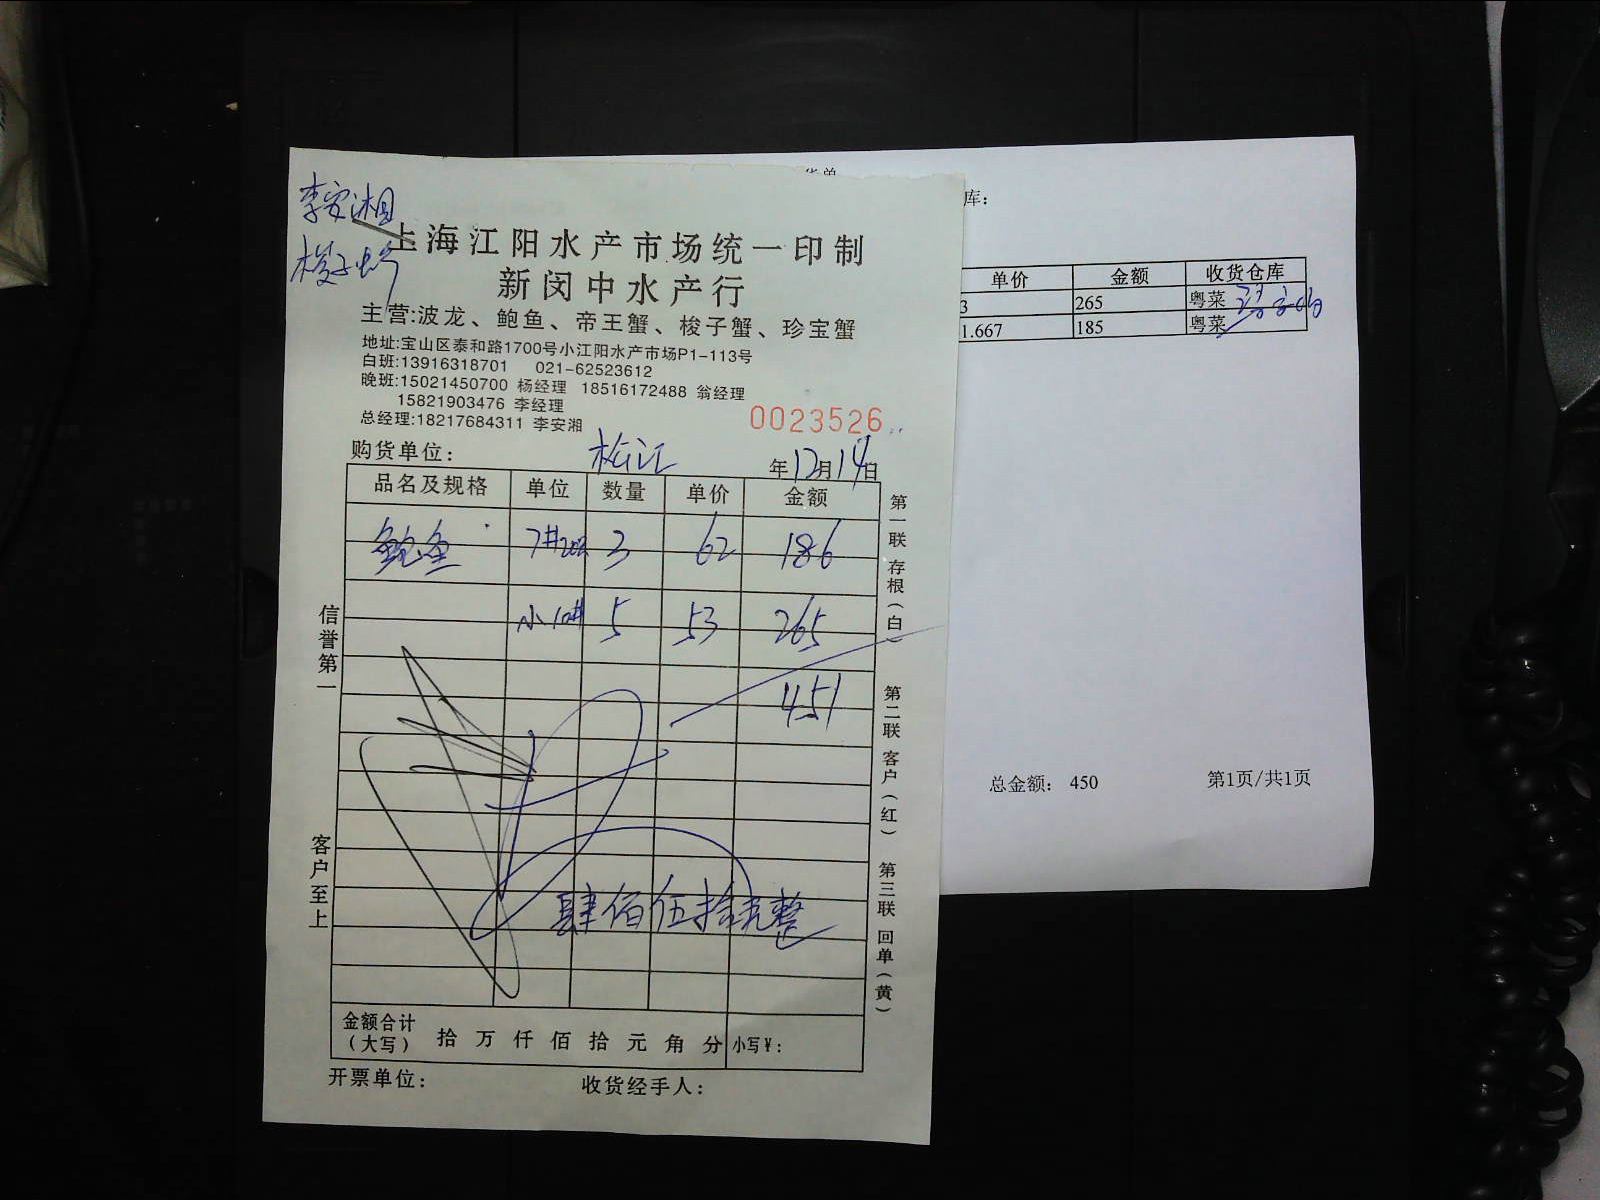 李安湘
梭子蟹
上海江阳水产市场统一印制
新闵中水产行
主营:波龙、鲍鱼、帝王蟹、梭子蟹、珍宝蟹
地址:宝山区泰和路1700号小江阳水产市场P1-113号
白班:13916318701 021-62523612
晚班:15021450700 杨经理 18516172488 翁经理
15821903476 李经理
总经理:18217684311 李安湘
0023526
购货单位: 松江 年12月14日
品名及规格 单位 数量 单价 金额
鲍鱼 7# 3 62 186
小10# 5 53 265
451
肆佰伍拾元整
金额合计
(大写) 拾 万 仟 佰 拾 元 角 分 小写¥:
开票单位: 收货经手人:
信誉第一
客户至上
第一联 存根(白)
第二联 客户(红)
第三联 回单(黄)
库:
单价 金额 收货仓库
3 265 粤菜
1.667 185 粤菜
总金额: 450 第1页/共1页